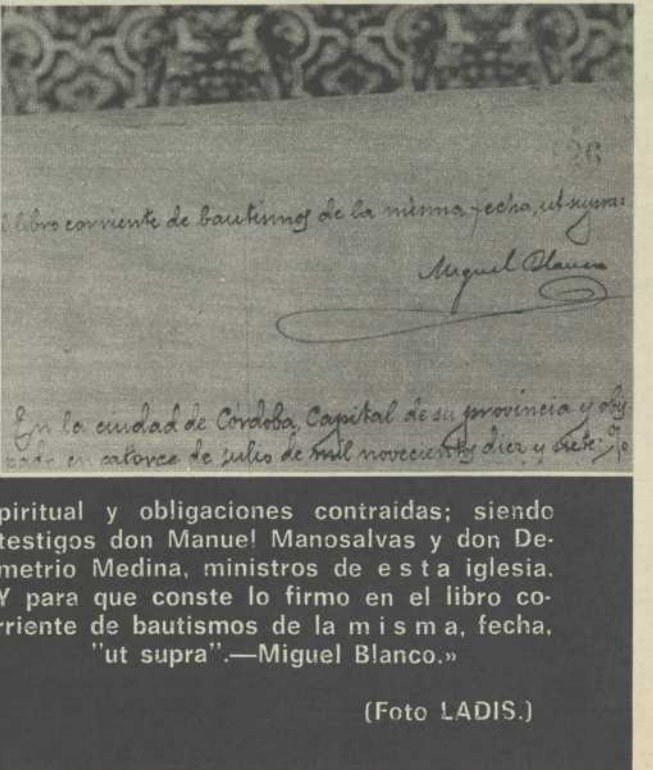 libro corriente de bautismos de la misma fecha, ut supra=
Miguel Blanco
En la ciudad de Córdoba, Capital de su provincia y obis-
pado en catorce de julio de mil novecientos diez y siete:
piritual y obligaciones contraidas; siendo
testigos don Manuel Manosalvas y don De-
metrio Medina, ministros de esta iglesia.
Y para que conste lo firmo en el libro co-
rriente de bautismos de la misma, fecha,
"ut supra".—Miguel Blanco.»
(Foto LADIS.)